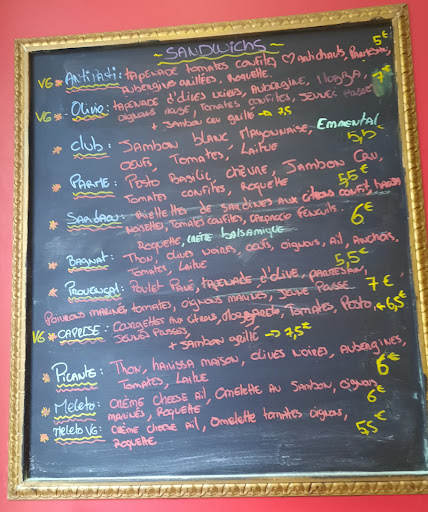 ~ SANDWICHS ~
VG * ANTIPASTI : TAPENADE TOMATES CONFITES, ♡ ARTICHAUTS, PARMESAN, 5€
AUBERGINES GRILLÉES, ROQUETTE.
VG * OLIVIO : TAPENADE D'OLIVES NOIRES, AUBERGINE, 7€
OIGNONS ROUGE, TOMATES CONFITES, JEUNES POUSSES
+ JAMBON CRU GRILLÉ → 7,5
* CLUB : JAMBON BLANC MAYONNAISE, EMMENTAL
OEUFS, TOMATES, LAITUE 5,5€
* PARME : PESTO BASILIC, CHÈVRE, JAMBON CRU,
TOMATES CONFITES, ROQUETTE 5,5€
* RIELLETTES DE SARDINES AUX CITRONS CONFITS,
NOISETTES, TOMATES CONFITES, CARPACCIO FENOUILS 6€
ROQUETTE, CRÈME BALSAMIQUE
* BAGNAT : THON, OLIVES NOIRES, OEUFS, OIGNONS, AIL, ANCHOIS,
TOMATES, LAITUE 5,5€
* PROVENÇAL : POULET PANÉ, TAPENADE D'OLIVE, PARMESAN, 7€
POIVRONS MARINÉS, TOMATES, OIGNONS MARINÉS, JEUNE POUSSE
VG * CAPRESE : COURGETTES AUX CITRONS, TOMATES, PESTO → 6,5€
JEUNES POUSSES, + JAMBON GRILLÉ → 7,5€
* PICANTE : THON, HARISSA MAISON, OLIVES NOIRES, AUBERGINES,
TOMATES, LAITUE 6€
* MELETO : CRÈME CHEESE AIL, OMELETTE AU JAMBON, OIGNONS
MARINÉS, ROQUETTE 6€
* MELETO VG : CRÈME CHEESE AIL, OMELETTE TOMATES OIGNONS,
ROQUETTE 5,5€